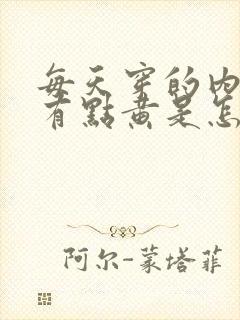 每天穿的内
有點黄是怎
阿尔-蒙塔菲